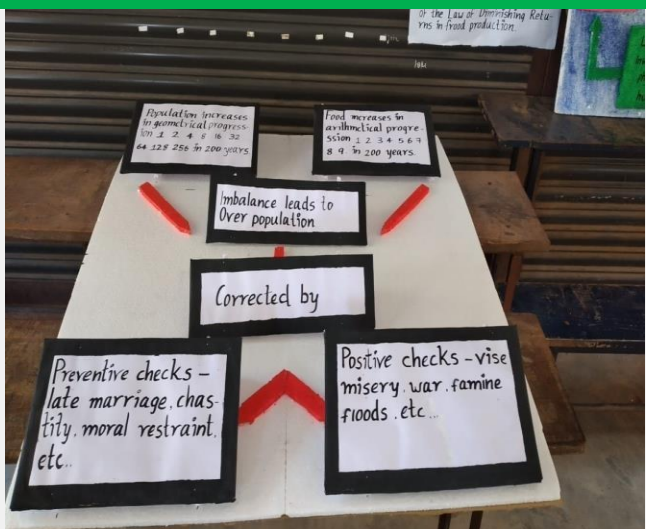 of the Law of Diminishing Retu-
rns in food production.
Population increases
in geometrical progress-
ion 1 2 4 8 16 32
64 128 256 in 200 years.
Food increases in
arithmetical progre-
ssion 1 2 3 4 5 6 7
8 9. in 200 years.
Imbalance leads to
Over population
Corrected by
Preventive checks –
late marriage, chas-
tity, moral restraint,
etc...
Positive checks – vise
misery, war, famine
floods, etc...